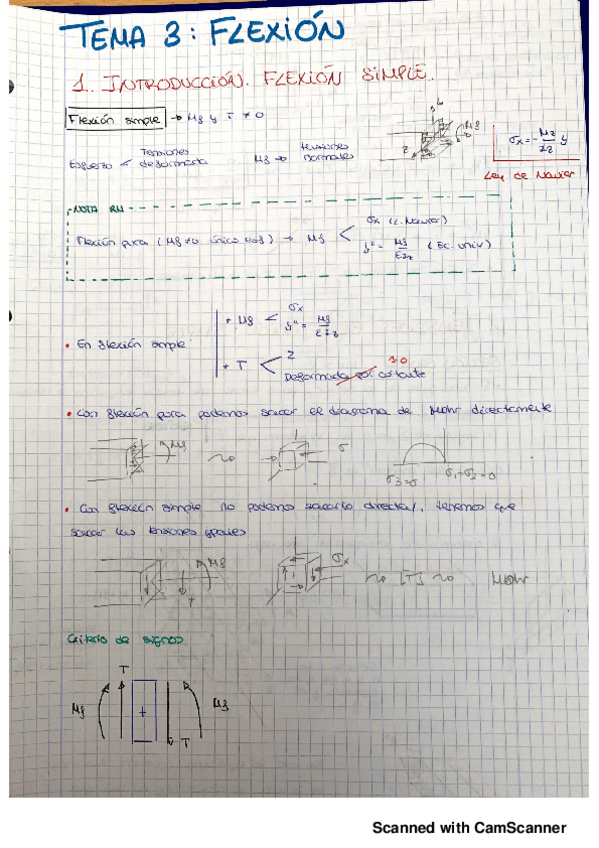 TEMA 3: FLEXIÓN
1. INTRODUCCIÓN. FLEXIÓN SIMPLE.
Flexión simple → Mf y T ≠ 0
Esfuerzo < Tensiones
deformada
Mf → tensiones
normales
σx = - Mz/Iz y
Ley de Navier
NOTA RM
Flexión pura (Mf ≠ 0 único esf) → Mf < σx (L. Navier)
y'' = Mf/EIz (Ec. univ)
• En flexión simple:
+ Mf < σx
y'' = Mf/EIz
+ T <
Deformada por cortante
≈0
• Con flexión pura podemos sacar el diagrama de Mohr directamente
Mf
σ
σ1=σ2=0
• Con flexión simple no podemos sacarlo directa/, tenemos que
sacar las tensiones
Mf
T
σx
[T]
Mohr
Criterio de signos
T
Mf
+
Mf
T
Scanned with CamScanner